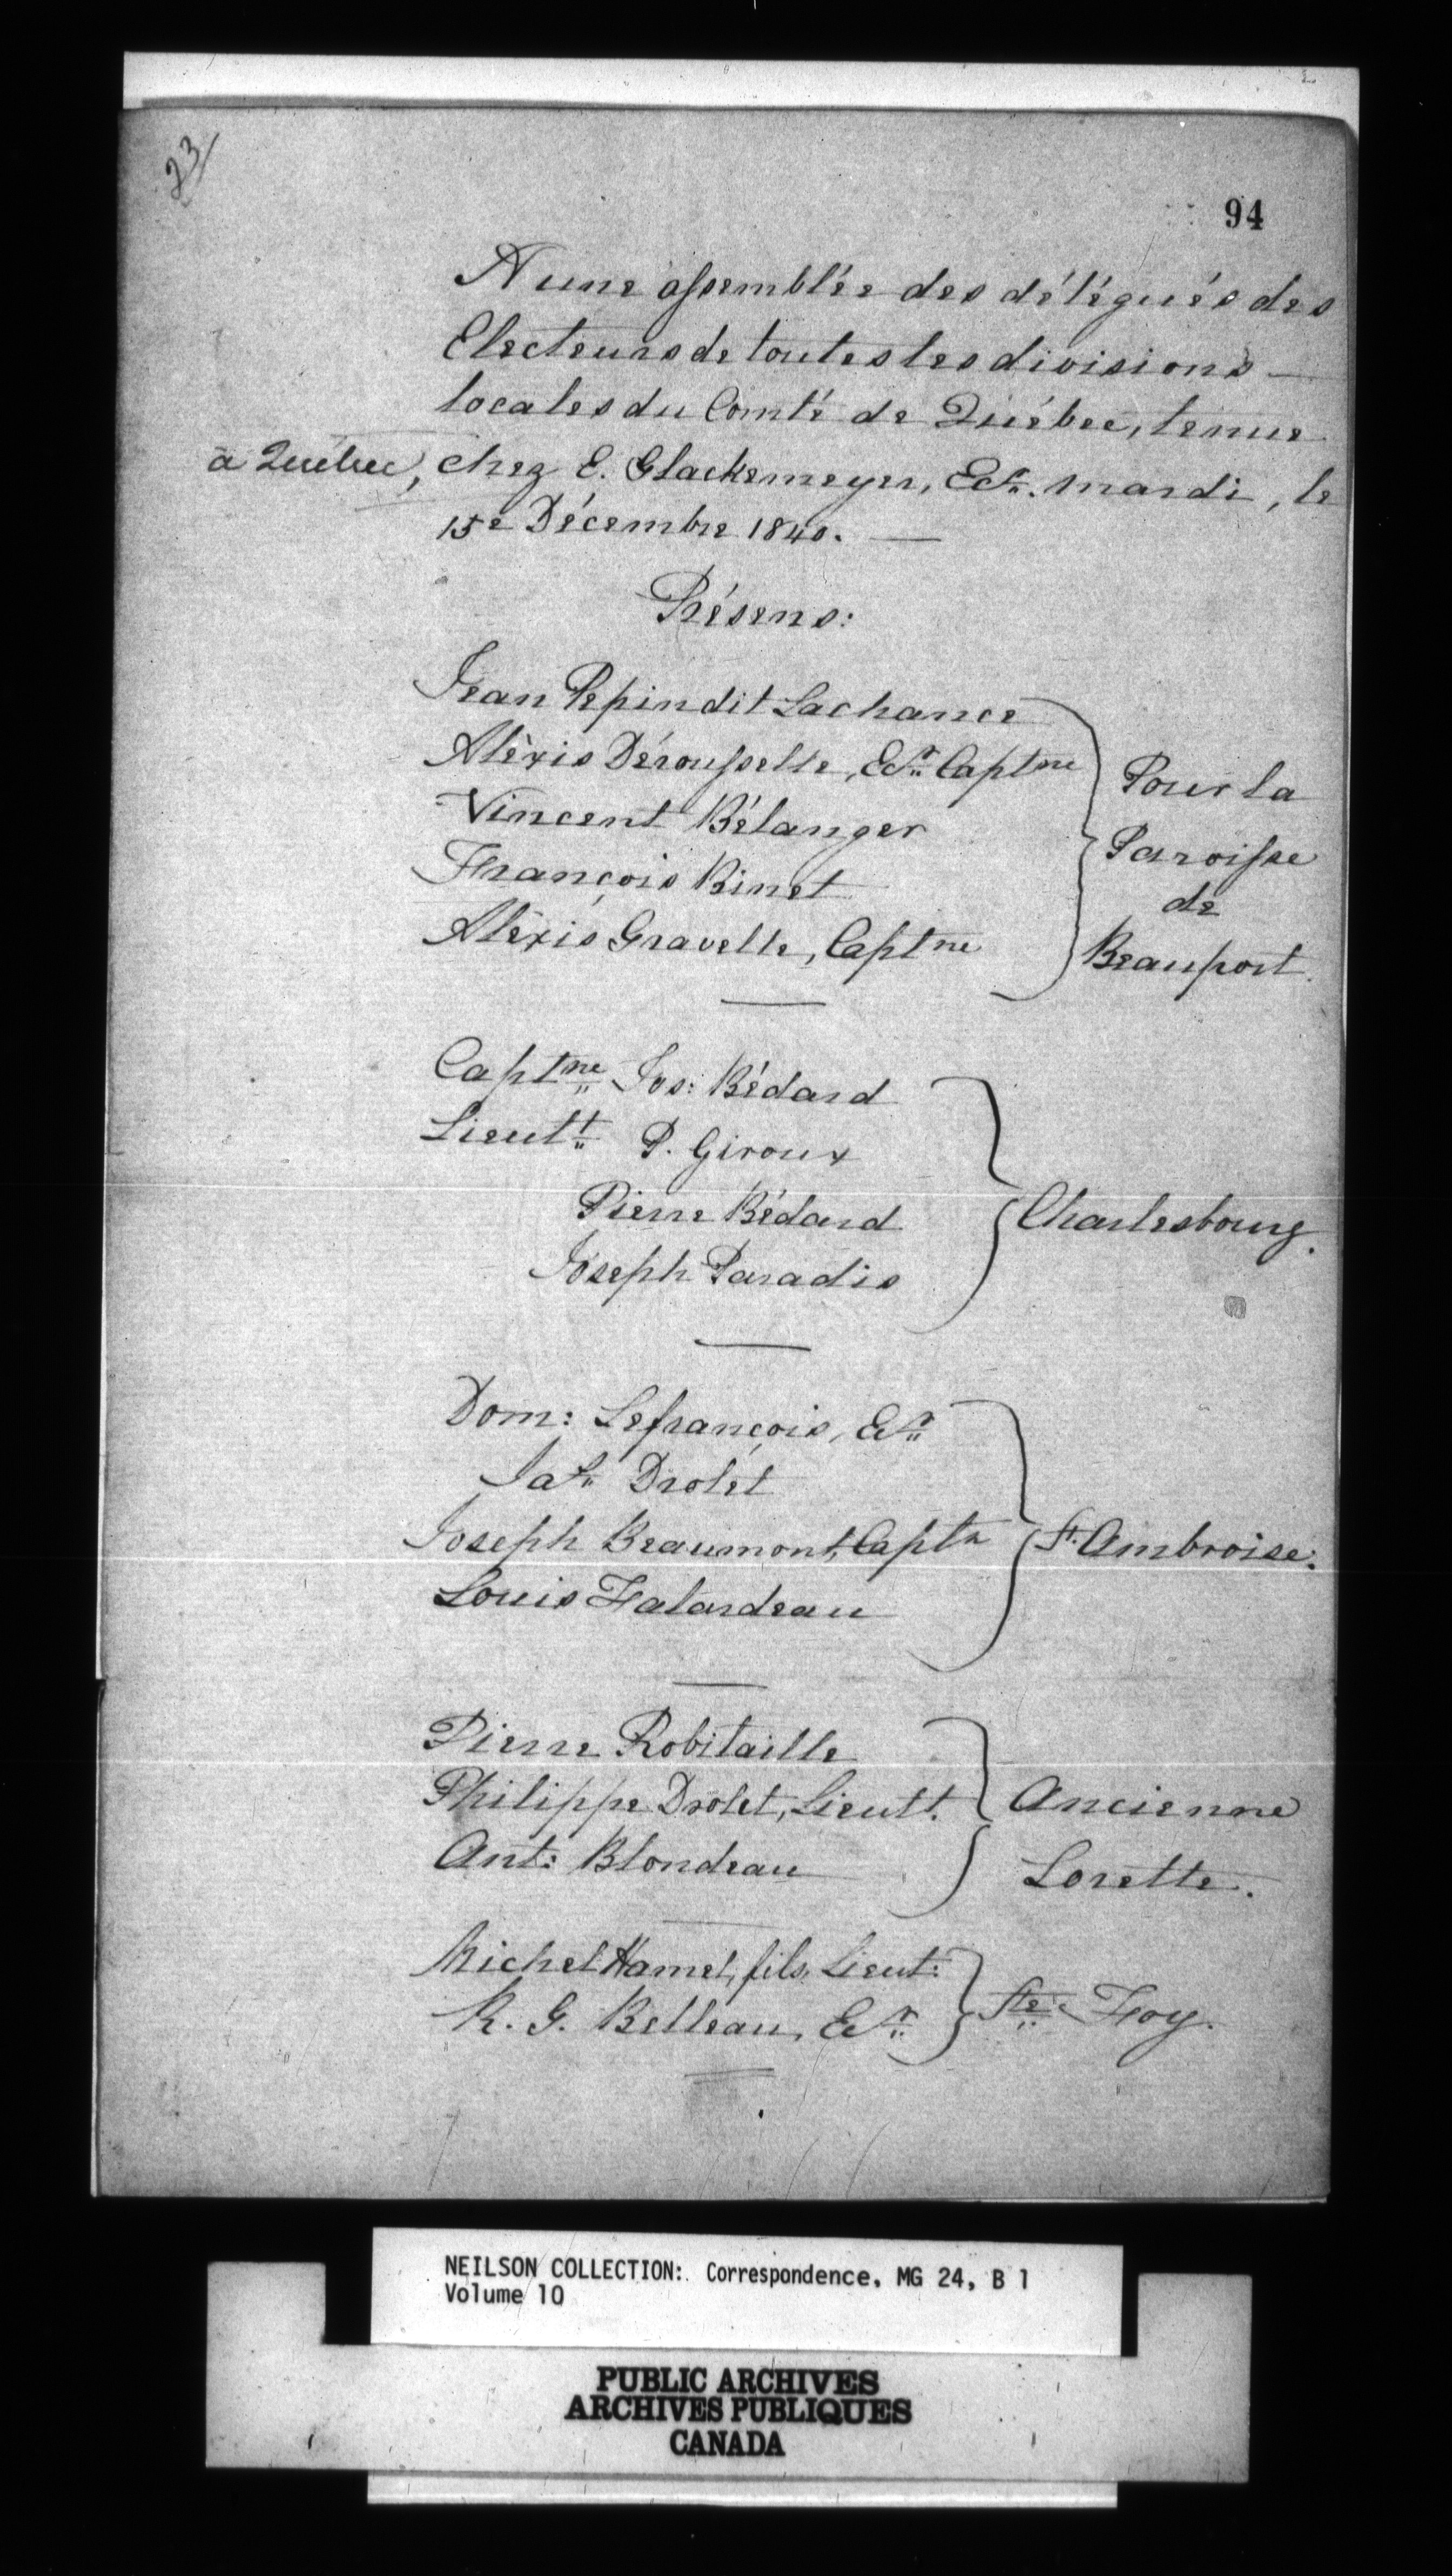 23/
94
A une assemblée des délégués des
Electeurs de toutes les divisions —
locales du Comté de Québec, tenue
à Québec, chez E. Glackemeyer, Ecr. mardi, le
15e Décembre 1840. —
Présens:
Jean Pepin dit Lachance
Alèxis Dérousselle, Ecr. Captne
Pour la
Vincent Bélanger
Paroisse
François Binet
de
Alèxis Gravelle, Captne
Beauport.
Captne Jos: Bédard
Lieutt P. Giroux
Pierre Bédard
Charlesbourg.
Joseph Paradis
Dom: Lefrançois, Ecr
Jas Drolet
Joseph Beaumont, Captn
St. Ambroise.
Louis Falardeau
Pierre Robitaille
Philippe Drolet, Lieutt.
Ancienne
Ant: Blondeau
Lorette.
Michel Hamel, fils, Lieut:
R. G. Belleau, Ecr
Ste Foy.
NEILSON COLLECTION: Correspondence, MG 24, B 1
Volume 10
PUBLIC ARCHIVES
ARCHIVES PUBLIQUES
CANADA